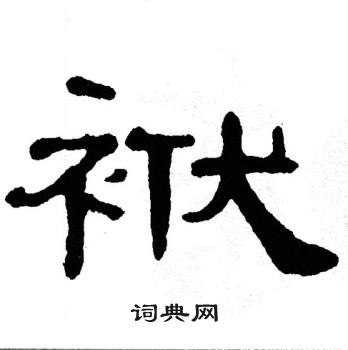 袱
词典网